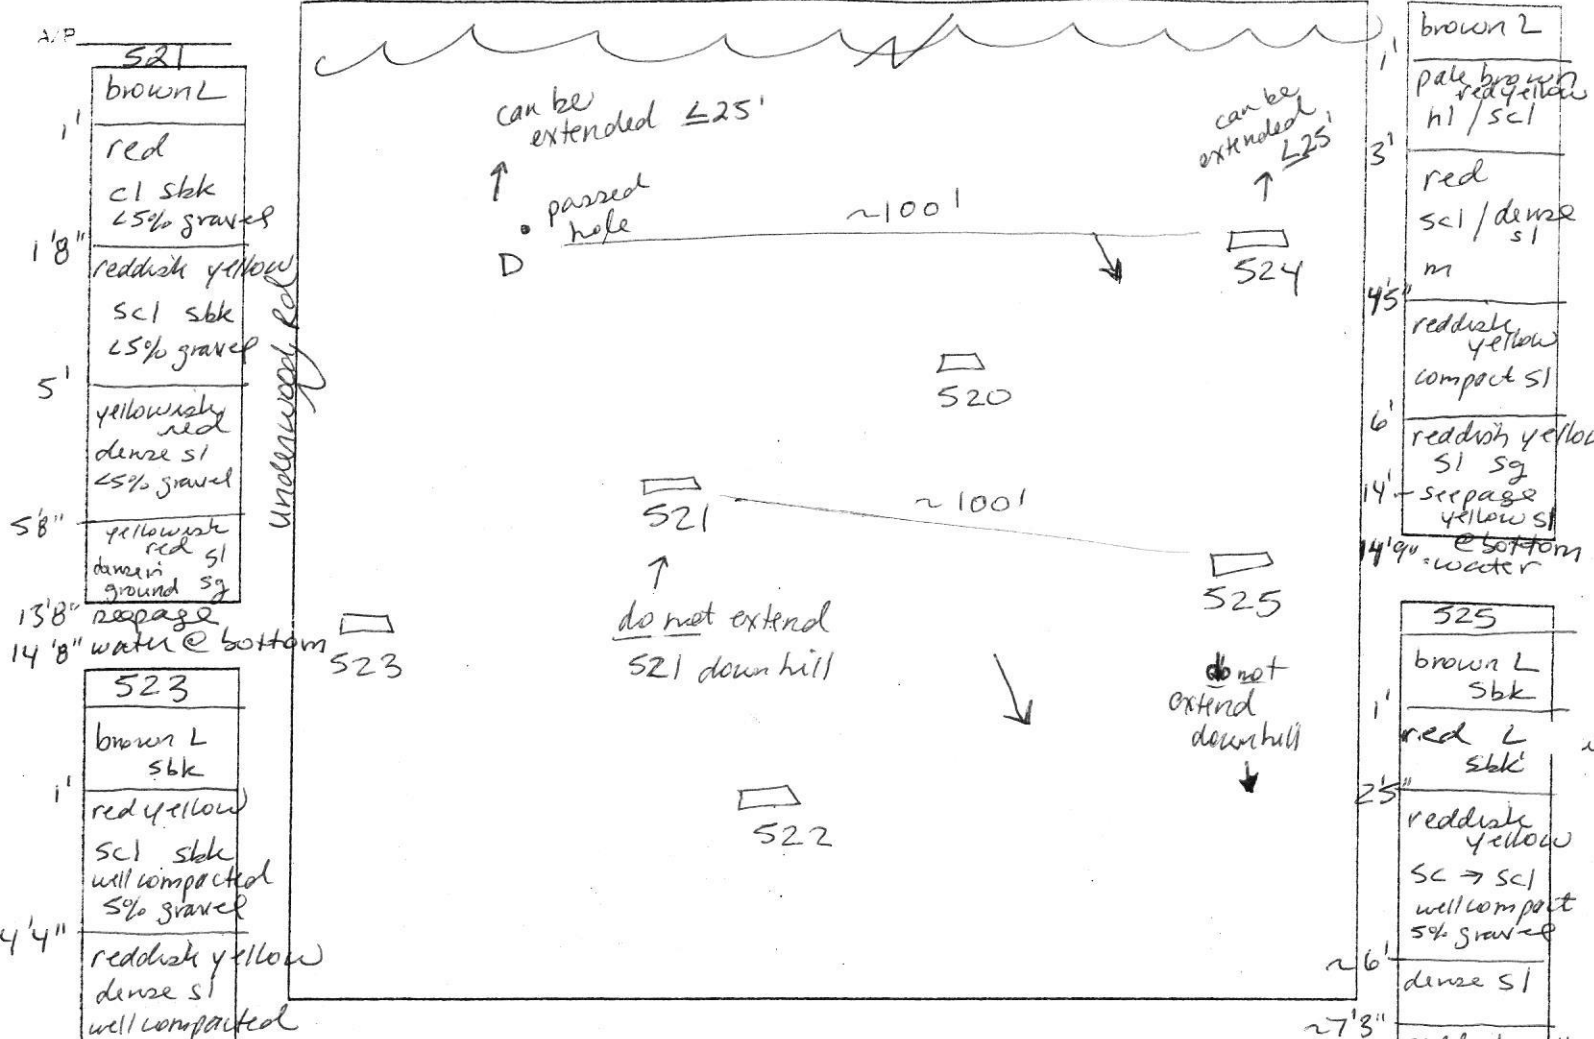 A/P
521
brown L
1'
red
cl sbk
<5% gravel
1'8"
reddish yellow
scl sbk
<5% gravel
5'
yellowish
red
dense sl
<5% gravel
5'8"
yellowish
red sl
dense in
ground sg
13'8" seepage
14'8" water @ bottom
523
brown L
sbk
1'
red yellow
scl sbk
well compacted
5% gravel
4'4"
reddish yellow
dense sl
well compacted
Underwood Rd
can be
extended ≤25'
passed
hole
D
~100'
can be
extended
≤25'
524
520
521
~100'
525
523
do not extend
521 downhill
do not
extend
downhill
522
brown L
1'
pale brown
red yellow
hl / scl
3'
red
scl / dense
sl
m
4'5"
reddish
yellow
compact sl
6'
reddish yellow
sl sg
14' seepage
yellow sl
@ bottom
14'9" water
525
brown L
sbk
1'
red L
sbk
2'5"
reddish
yellow
sc → scl
well compact
5% gravel
~6'
dense sl
~7'3"